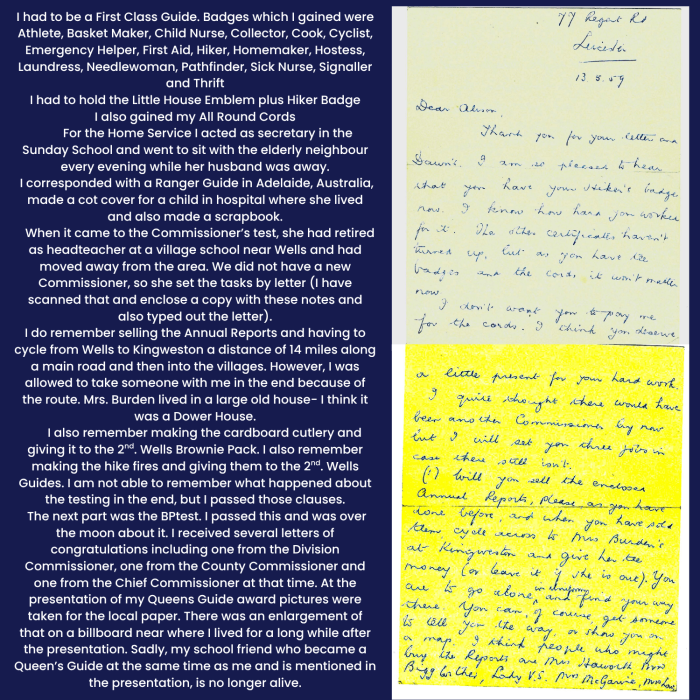 I had to be a First Class Guide. Badges which I gained were
Athlete, Basket Maker, Child Nurse, Collector, Cook, Cyclist,
Emergency Helper, First Aid, Hiker, Homemaker, Hostess,
Laundress, Needlewoman, Pathfinder, Sick Nurse, Signaller
and Thrift
I had to hold the Little House Emblem plus Hiker Badge
I also gained my All Round Cords
For the Home Service I acted as secretary in the
Sunday School and went to sit with the elderly neighbour
every evening while her husband was away.
I corresponded with a Ranger Guide in Adelaide, Australia,
made a cot cover for a child in hospital where she lived
and also made a scrapbook.
When it came to the Commissioner's test, she had retired
as headteacher at a village school near Wells and had
moved away from the area. We did not have a new
Commissioner, so she set the tasks by letter (I have
scanned that and enclose a copy with these notes and
also typed out the letter).
I do remember selling the Annual Reports and having to
cycle from Wells to Kingweston a distance of 14 miles along
a main road and then into the villages. However, I was
allowed to take someone with me in the end because of
the route. Mrs. Burden lived in a large old house- I think it
was a Dower House.
I also remember making the cardboard cutlery and
giving it to the 2nd. Wells Brownie Pack. I also remember
making the hike fires and giving them to the 2nd. Wells
Guides. I am not able to remember what happened about
the testing in the end, but I passed those clauses.
The next part was the BPtest. I passed this and was over
the moon about it. I received several letters of
congratulations including one from the Division
Commissioner, one from the County Commissioner and
one from the Chief Commissioner at that time. At the
presentation of my Queens Guide award pictures were
taken for the local paper. There was an enlargement of
that on a billboard near where I lived for a long while after
the presentation. Sadly, my school friend who became a
Queen's Guide at the same time as me and is mentioned in
the presentation, is no longer alive.
77 Regent Rd
Leicester
13.8.59
Dear Alison,
Thank you for your letter and
Dawn's. I am so pleased to hear
that you have your Hiker's badge
now. I know how hard you worked
for it. The other certificates haven't
turned up, but as you have the
badges and the cords it won't matter
now.
I don't want you to pay me
for the cords. I think you deserve
a little present for your hard work.
I quite thought there would have
been another Commissioner by now
but I will set you three jobs in
case there still isn't.
(1) Will you sell the enclosed
Annual Reports, please as you have
done before, and when you have sold
them cycle across to Mrs Burden's
at Kingweston and give her the
money (or leave it if she is out). You
are to go alone, in uniform, and find your way
there. You can, of course, get someone
to tell you the way, or show you on
a map. I think people who might
buy the Reports are Mrs Haworth Mrs
Bigg Wither, Lady V.S. Mrs McGarvie,